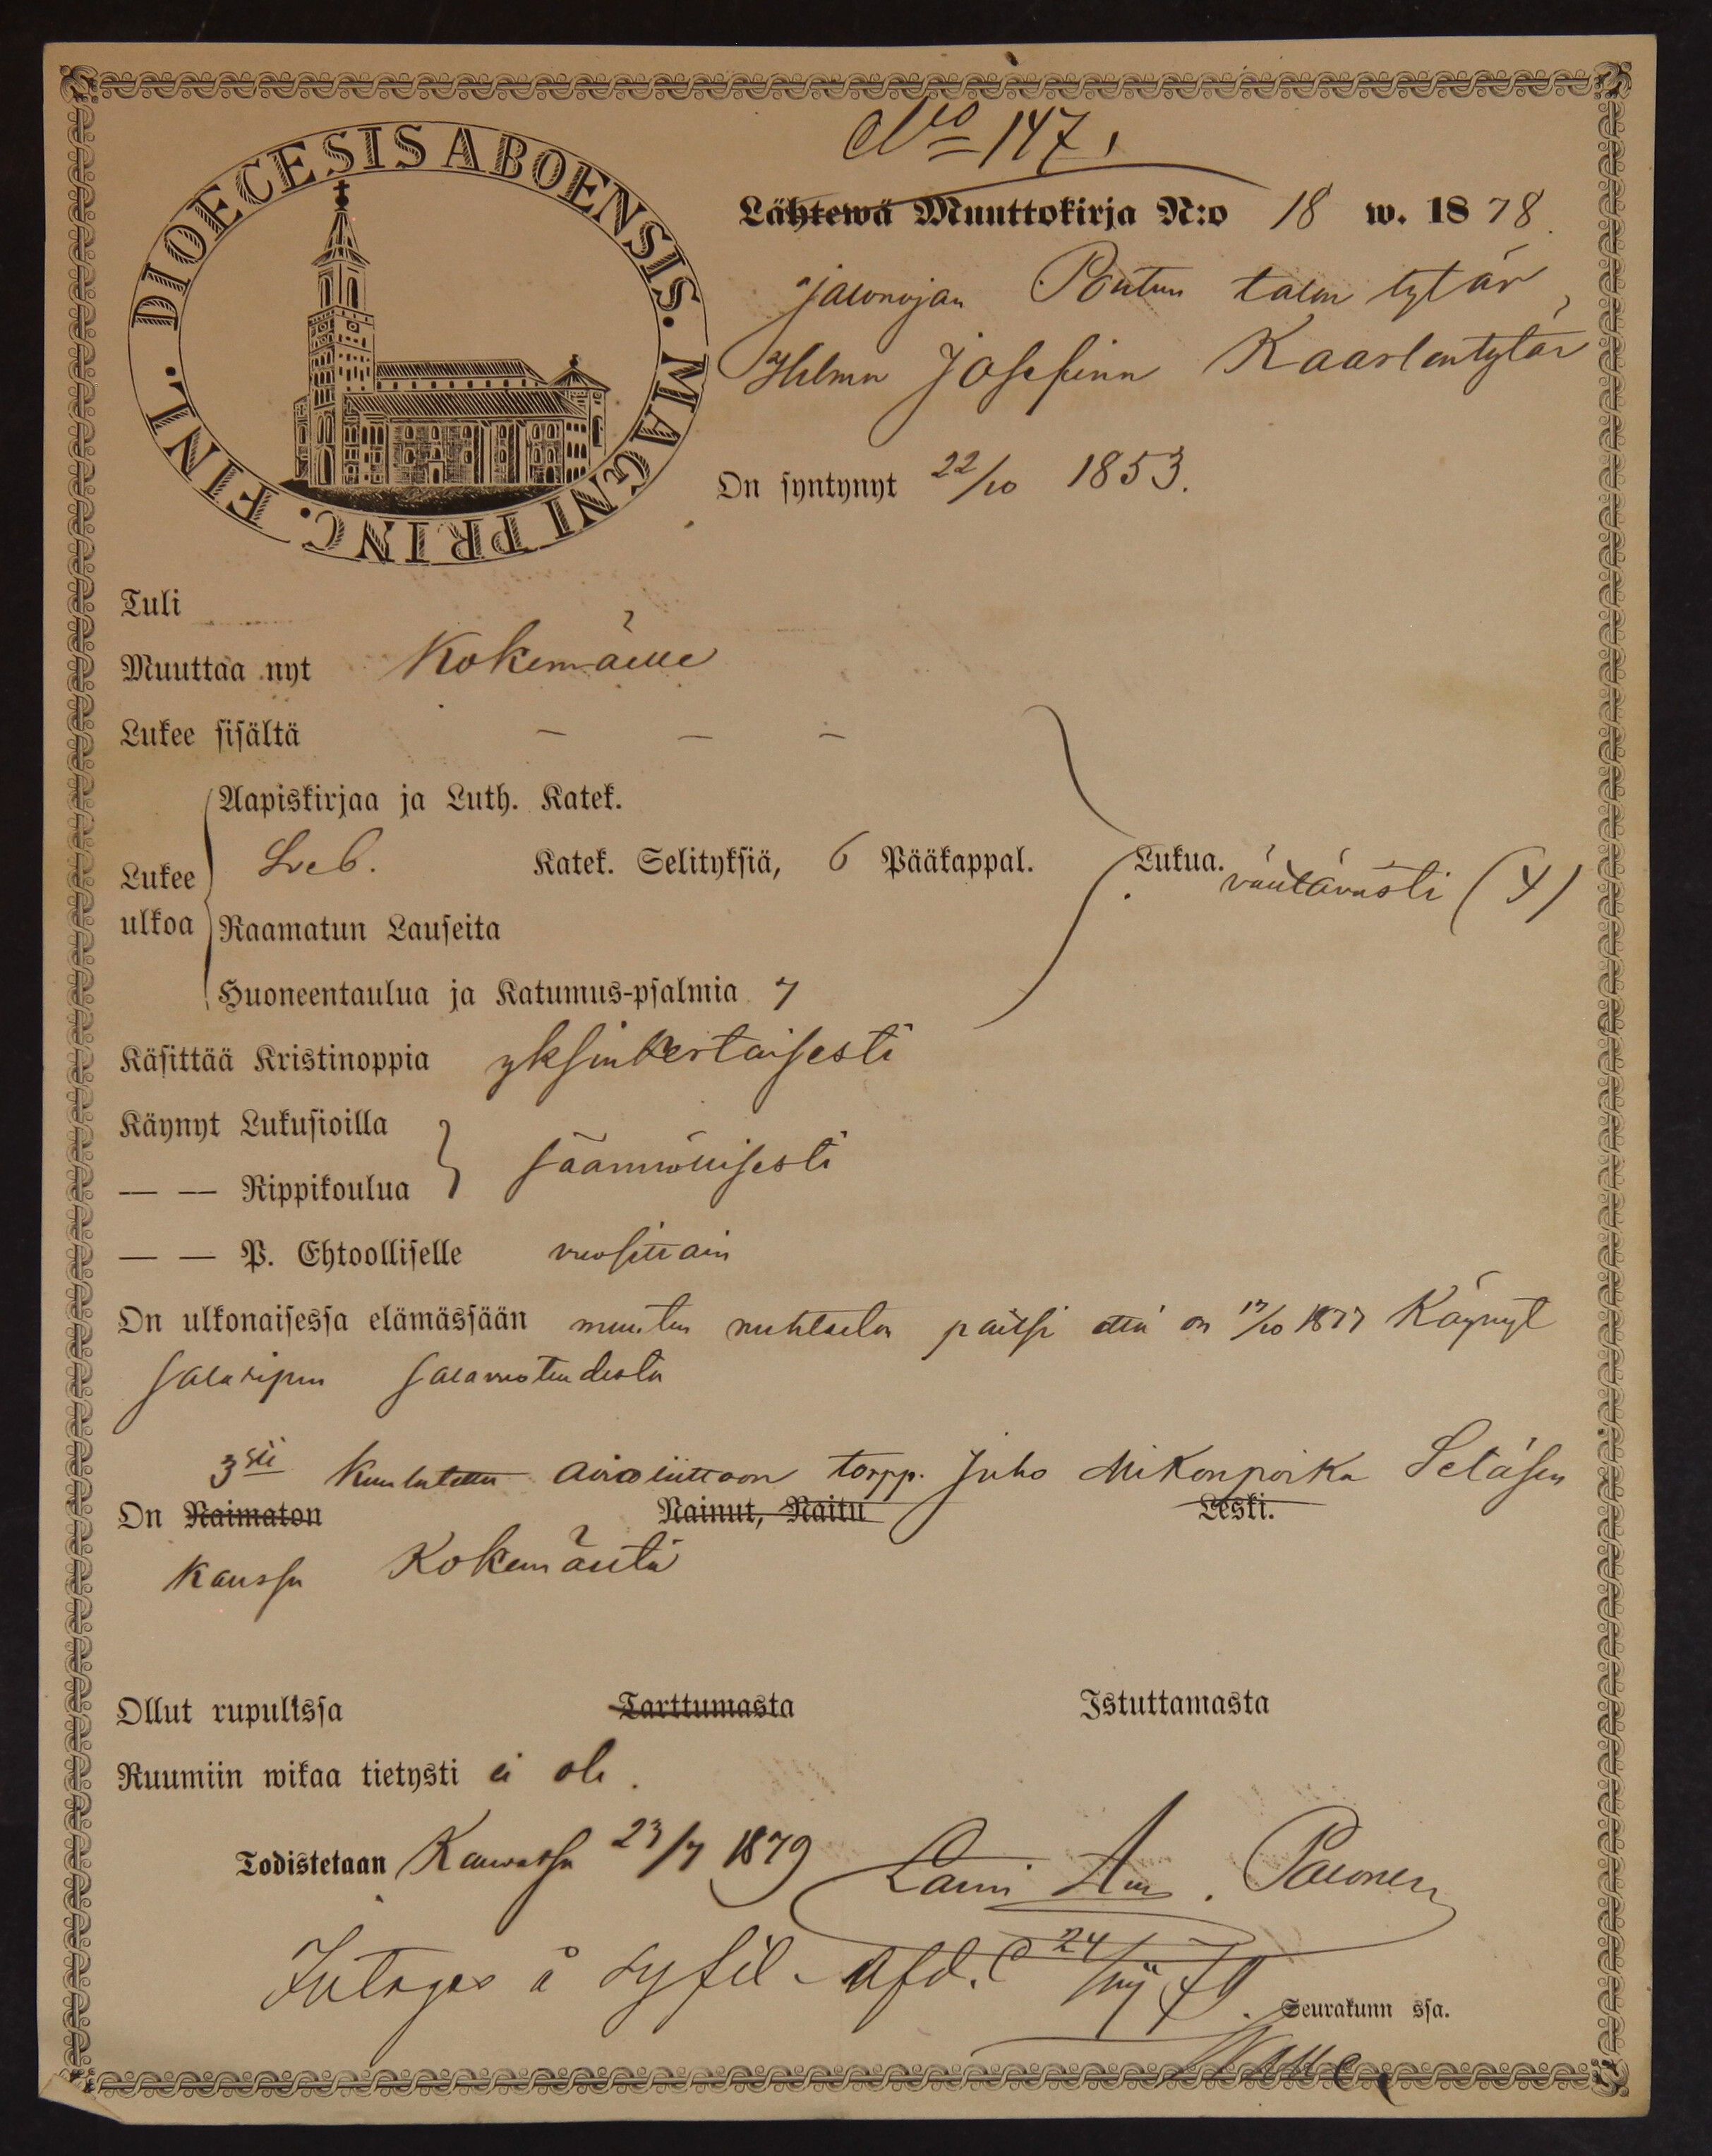 DIOECESIS ABOENSIS. MAGNI PRINC. FINL.
N:o 147.
Lähtewä Muuttokirja N:o 18 w. 1878.
talon tytär,
Josefina Kaarlentytär
On syntynyt 22/10 1853.
Tuli
Muuttaa nyt Kokemäelle
Lukee sisältä — — —
Aapiskirjaa ja Luth. Katek.
Lukee ulkoa Sveb. Katek. Selityksiä, 6 Pääkappal. Lukua. välttävästi (4)
Raamatun Lauseita
Huoneentaulua ja Katumus-psalmia 7
Käsittää Kristinoppia yksinkertaisesti
Käynyt Lukusioilla
— — Rippikoulua säännöllisesti
— — P. Ehtoolliselle vuosittain
On ulkonaisessa elämässään muuten nuhteeton paitsi että on 17/10 1877 Käynyt
salaripin salavuoteudesta
3sti kuulutettu avioliittoon torpp. Juho Mikonpoika
On Naimaton Nainut, Naitu Leski.
kanssa Kokemäeltä
Ollut rupulissa Tarttumasta Istuttamasta
Ruumiin wikaa tietysti ei ole.
Todistetaan Kauvatsa 23/7 1879
Intages å syfil. afd. 24/VII 79.
Seurakunn ssa.